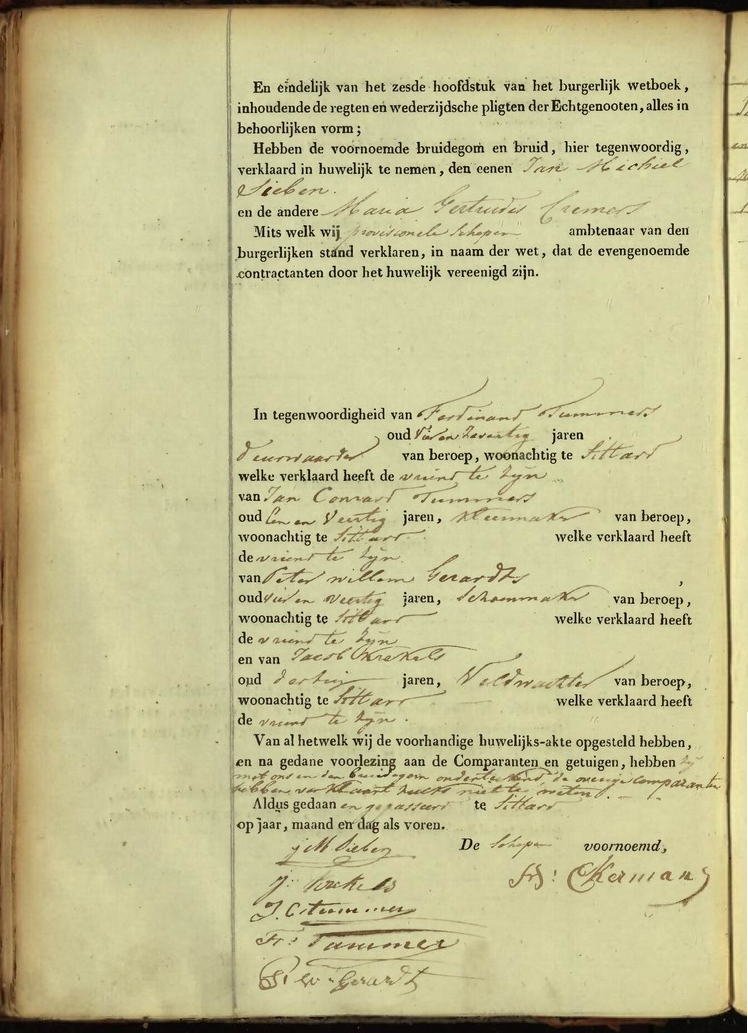 En eindelijk van het zesde hoofdstuk van het burgerlijk wetboek,
inhoudende de regten en wederzijdsche pligten der Echtgenooten, alles in
behoorlijken vorm ;
Hebben de voornoemde bruidegom en bruid, hier tegenwoordig,
verklaard in huwelijk te nemen, den eenen Jan Michiel
Sieben.
en de andere Maria Gertrudis Cremers
Mits welk wij provisionele Schepen ambtenaar van den
burgerlijken stand verklaren, in naam der wet, dat de evengenoemde
contractanten door het huwelijk vereenigd zijn.
In tegenwoordigheid van Ferdinand Tummers
oud vier en zeventig jaren
deurwaarder van beroep, woonachtig te Sittard
welke verklaard heeft de vriend te zyn
van Jan Conrard Tummers
oud Een en veertig jaren, kleermaker van beroep,
woonachtig te Sittard welke verklaard heeft
de vriend te zyn
van Peter willem Gerardts ,
oud vier en veertig jaren, Schoenmaker van beroep,
woonachtig te Sittard welke verklaard heeft
de vriend te zyn
en van Jacob Krekels
oud dertig jaren, Veldwachter van beroep,
woonachtig te Sittard welke verklaard heeft
de vriend te zyn.
Van al hetwelk wij de voorhandige huwelijks-akte opgesteld hebben,
en na gedane voorlezing aan de Comparanten en getuigen, hebben zy
met ons en den bruidegom onderteekend, de overige comparante
hebben verklaart zulks niet te weten.
Aldus gedaan en gepasseerd te Sittard
op jaar, maand en dag als voren.
De Schepen voornoemd,
jM Sieben
J: Krekels
J. C tummers
Frs Tummers
P: W: Gerardt